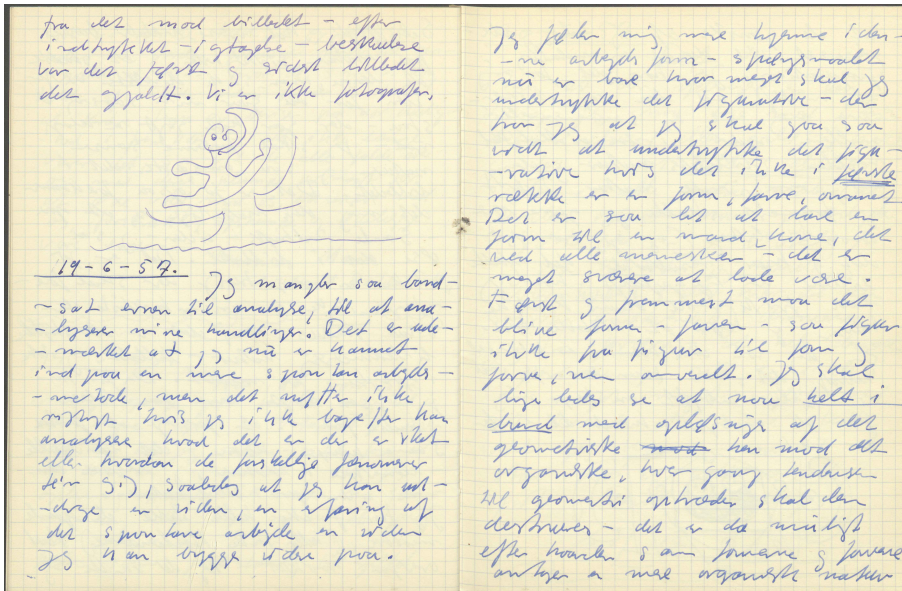 fra det mod billedet - efter
indtrykket - igtagelse - beskuelse
var det først og sidst billedet
det gjaldt. Vi er ikke fotografer.
19-6-57.
Jeg mangler saa band-
-sat evnen til analyse, til at ana-
-lysere mine handlinger. Det er ud-
-mærket at jeg nu er kommet
ind paa en mere spontan arbejds-
-metode, men det nytter ikke
rigtigt hvis jeg ikke bagefter kan
analysere hvad det er der er sket
eller hvordan de forskellige fænomener
ter sig, saaledes at jeg kan ud-
-drage en viden, en erfaring af
det spontane arbejde en viden
jeg kan bygge videre paa.
Jeg føler mig mere hjemme i den-
-ne arbejds form - spørgsmaalet
nu er bare hvor meget skal jeg
undertrykke det figurative - der
tror jeg at jeg skal gaa saa
vidt at undertrykke det figu-
-rative hvis det ikke i første
række er en form, farve, ornament
Det er saa let at lave en
form til en mand, kone, det
ved alle mennesker - det er
meget sværere at lade være.
Først og fremmest maa det
blive form - farven - saa figur
ikke fra figur til form og
farve, men omvendt. Jeg skal
ligeledes se at naa helt i
bund med opløsningen af det
geometriske mod hen mod det
organiske, hver gang tendensen
til geometri optræder skal den
destrueres - det er da muligt
efterhaanden som formerne og farverne
antager en mere organisk natur